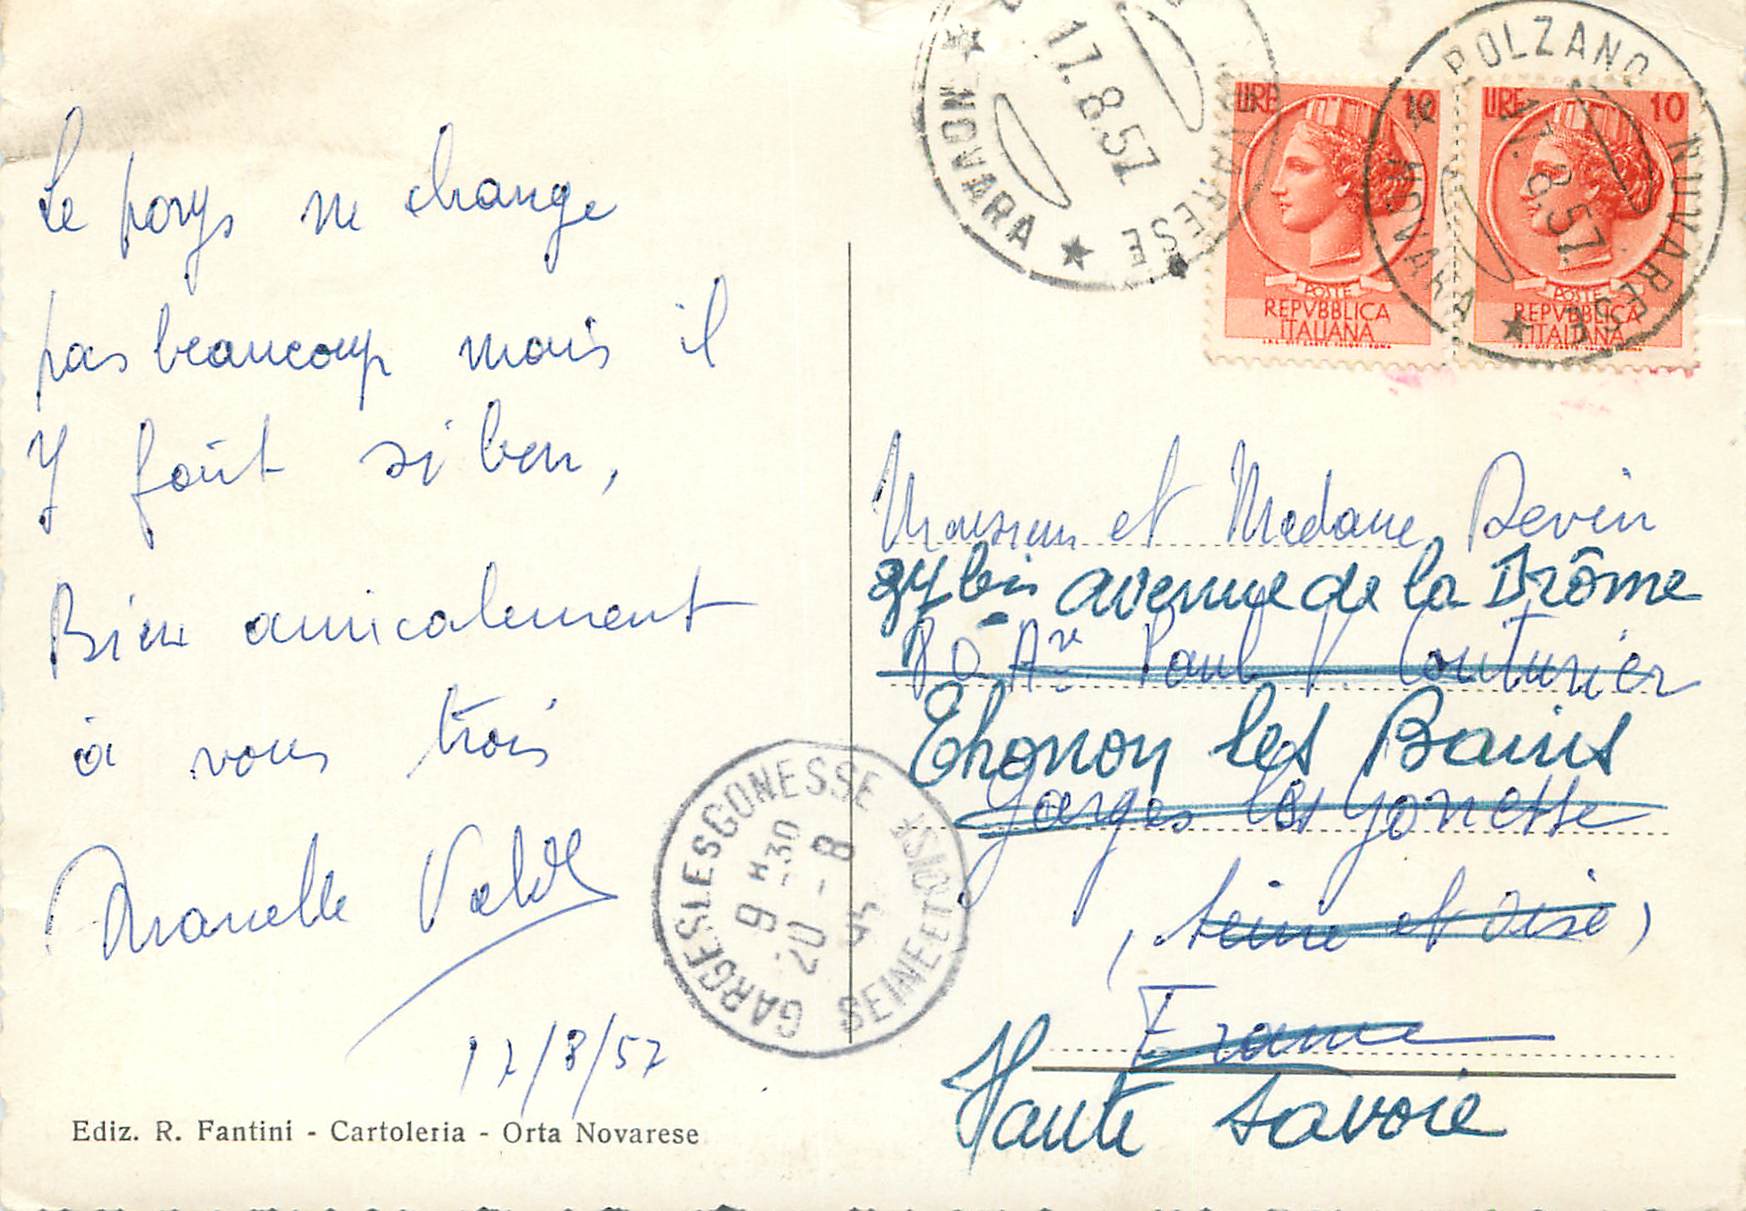 Le pays ne change
pas beaucoup mais il
y fait si bon,
Bien amicalement
à vous trois
17/8/57
Ediz. R. Fantini - Cartoleria - Orta Novarese
NOVARA ★
17.8.57
NOVARESE
LIRE 10
POSTE
REPVBBLICA
ITALIANA
LIRE 10
POSTE
REPVBBLICA
ITALIANA
BOLZANO NOVARESE
17.8.57
★ NOVARA ★
Monsieur et Madame Devin
bis avenue de la Drôme
80 Ave Paul V. Couturier
Thonon les Bains
Garges les Gonesse
(Seine et Oise)
France
Haute Savoie
GARGES LES GONESSE
9 H 30
20 - 8
SEINE ET OISE